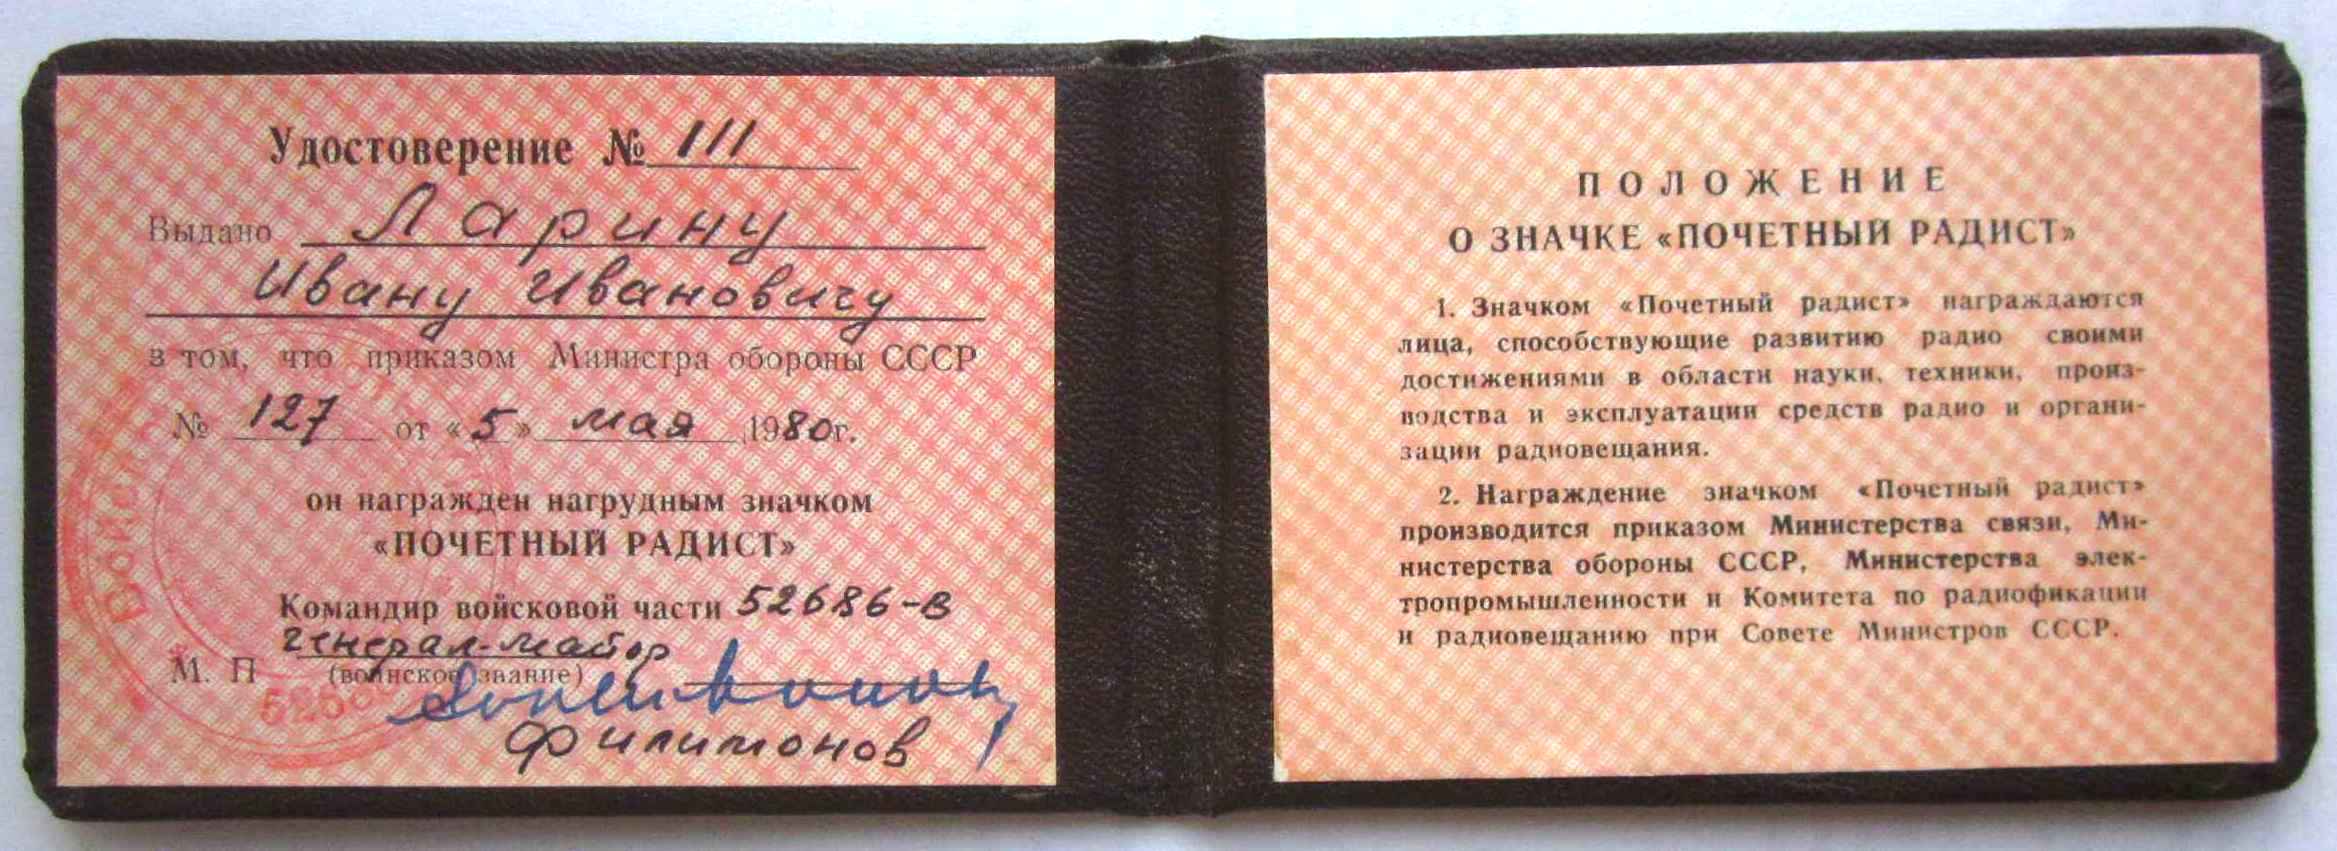 Удостоверение № 111
Выдано Ларину
Ивану Ивановичу
в том, что приказом Министра обороны СССР
№ 127 от «5» мая 1980г.
он награжден нагрудным значком
«ПОЧЕТНЫЙ РАДИСТ»
Командир войсковой части 52686-В
генерал-майор
М. П (воинское звание)
Филимонов
ПОЛОЖЕНИЕ
О ЗНАЧКЕ «ПОЧЕТНЫЙ РАДИСТ»
1. Значком «Почетный радист» награждаются
лица, способствующие развитию радио своими
достижениями в области науки, техники, произ-
водства и эксплуатации средств радио и органи-
зации радиовещания.
2. Награждение значком «Почетный радист»
производится приказом Министерства связи, Ми-
нистерства обороны СССР, Министерства элек-
тропромышленности и Комитета по радиофикации
и радиовещанию при Совете Министров СССР.